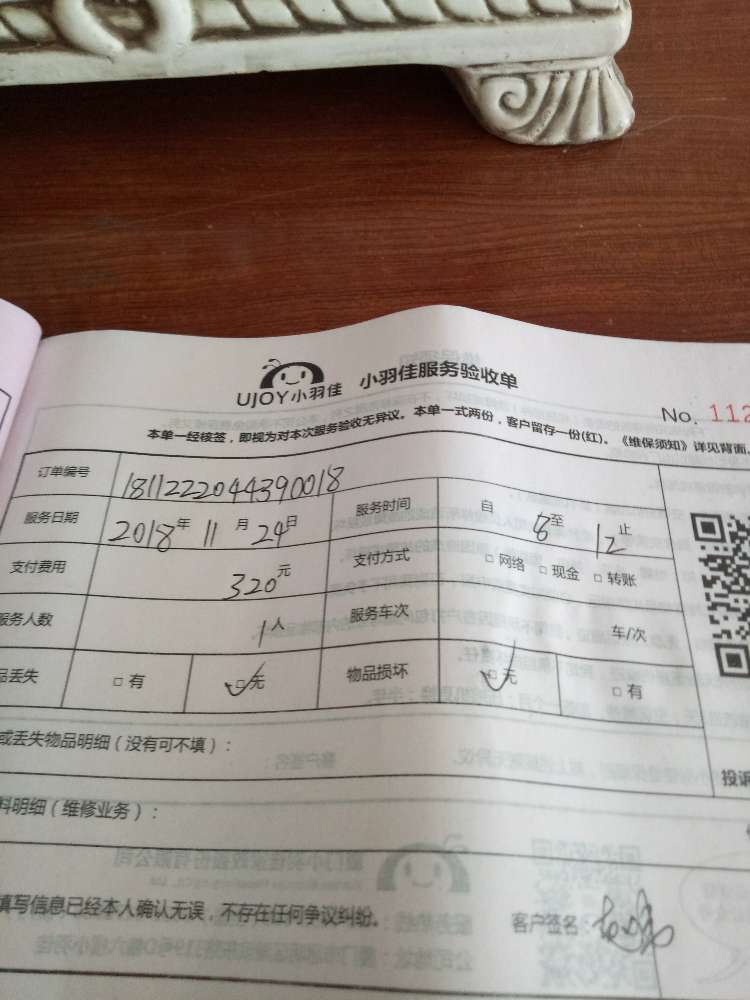 UJOY小羽佳 小羽佳服务验收单
No. 112
本单一经核签，即视为对本次服务验收无异议。本单一式两份，客户留存一份(红)。《维保须知》详见背面。
订单编号 1811222044390018
服务日期 2018年 11月 24日 服务时间 自 8至 12止
支付费用 320元 支付方式 □ 网络 □ 现金 □ 转账
服务人数 1人 服务车次 车/次
品丢失 □ 有 □ 无 物品损坏 □ 无 □ 有
或丢失物品明细（没有可不填）：
投诉
料明细（维修业务）：
填写信息已经本人确认无误，不存在任何争议纠纷。 客户签名